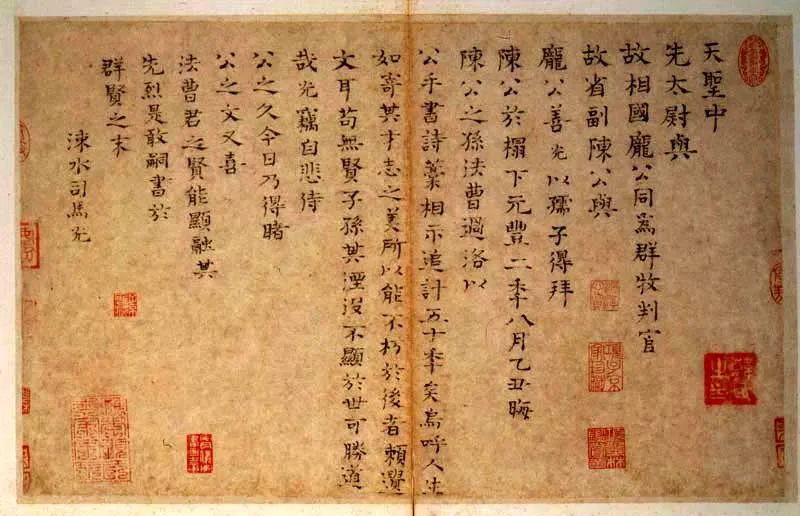 天聖中
先太尉與
故相國龐公同爲群牧判官
故省副陳公與
龐公善光以孺子得拜
陳公於榻下元豐二季八月乙丑晦
陳公之孫法曹過洛以
公手書詩藁相示追計五十季矣烏呼人生
如寄其才志之美所以能不朽於後者賴遺
文耳苟無賢子孫其湮没不顯於世可勝道
哉光竊自悲待
公之久今日乃得睹
公之文又喜
法曹君之賢能顯融其
先烈是敢嗣書於
群賢之末
涑水司馬光